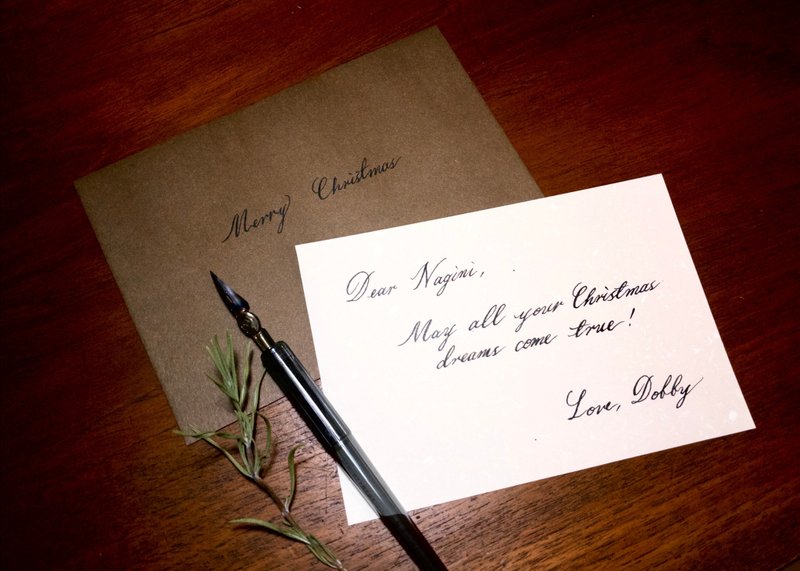 Merry Christmas
Dear Nagini,
May all your Christmas
dreams come true!
Love, Dobby